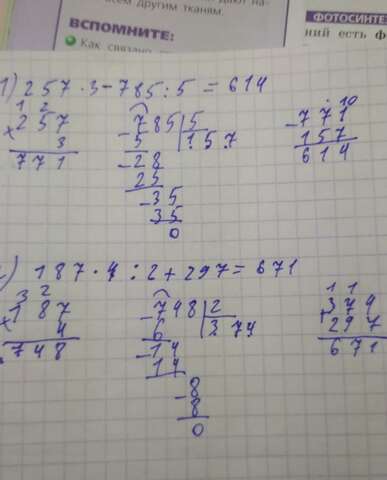 всем другим тканям.
ВСПОМНИТЕ:
Как связано
ФОТОСИНТЕ
ний есть ф
1) 257 · 3 - 785 : 5 = 614
1 2
× 257
3
771
- 785 | 5
5 | 157
- 28
25
- 35
35
0
· 10
- 771
157
614
) 187 · 4 : 2 + 297 = 671
3 2
× 187
4
748
- 748 | 2
6 | 374
- 14
14
- 8
8
0
1 1
+ 374
297
671